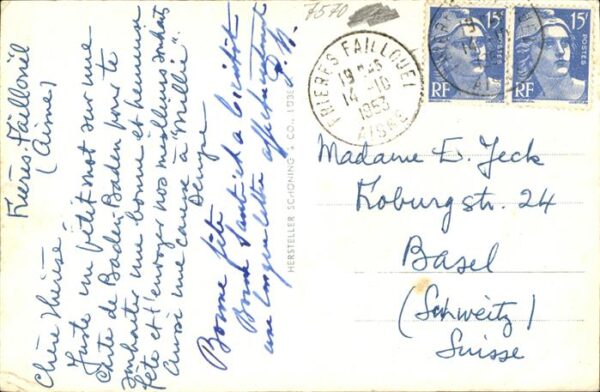 7570
Frières-Faillouël
(Aisne)
Chère Thérèse,
Juste un petit mot sur une
carte de Baden-Baden pour te
souhaiter une bonne et heureuse
fête et t'envoyer nos meilleurs souhaits
Ainsi une caresse à "Millie".
Denyse
Bonne fête
Bonne Santé et à bientôt
une longue lettre affectueusement
HERSTELLER SCHÖNING & CO., LÜBECK
FRIERES FAILLOUEL
19 H
14-10
1953
AISNE
15F
RF
15F
RF
Madame E. Jeck
Koburgstr. 24
Basel
(Schweitz)
Suisse